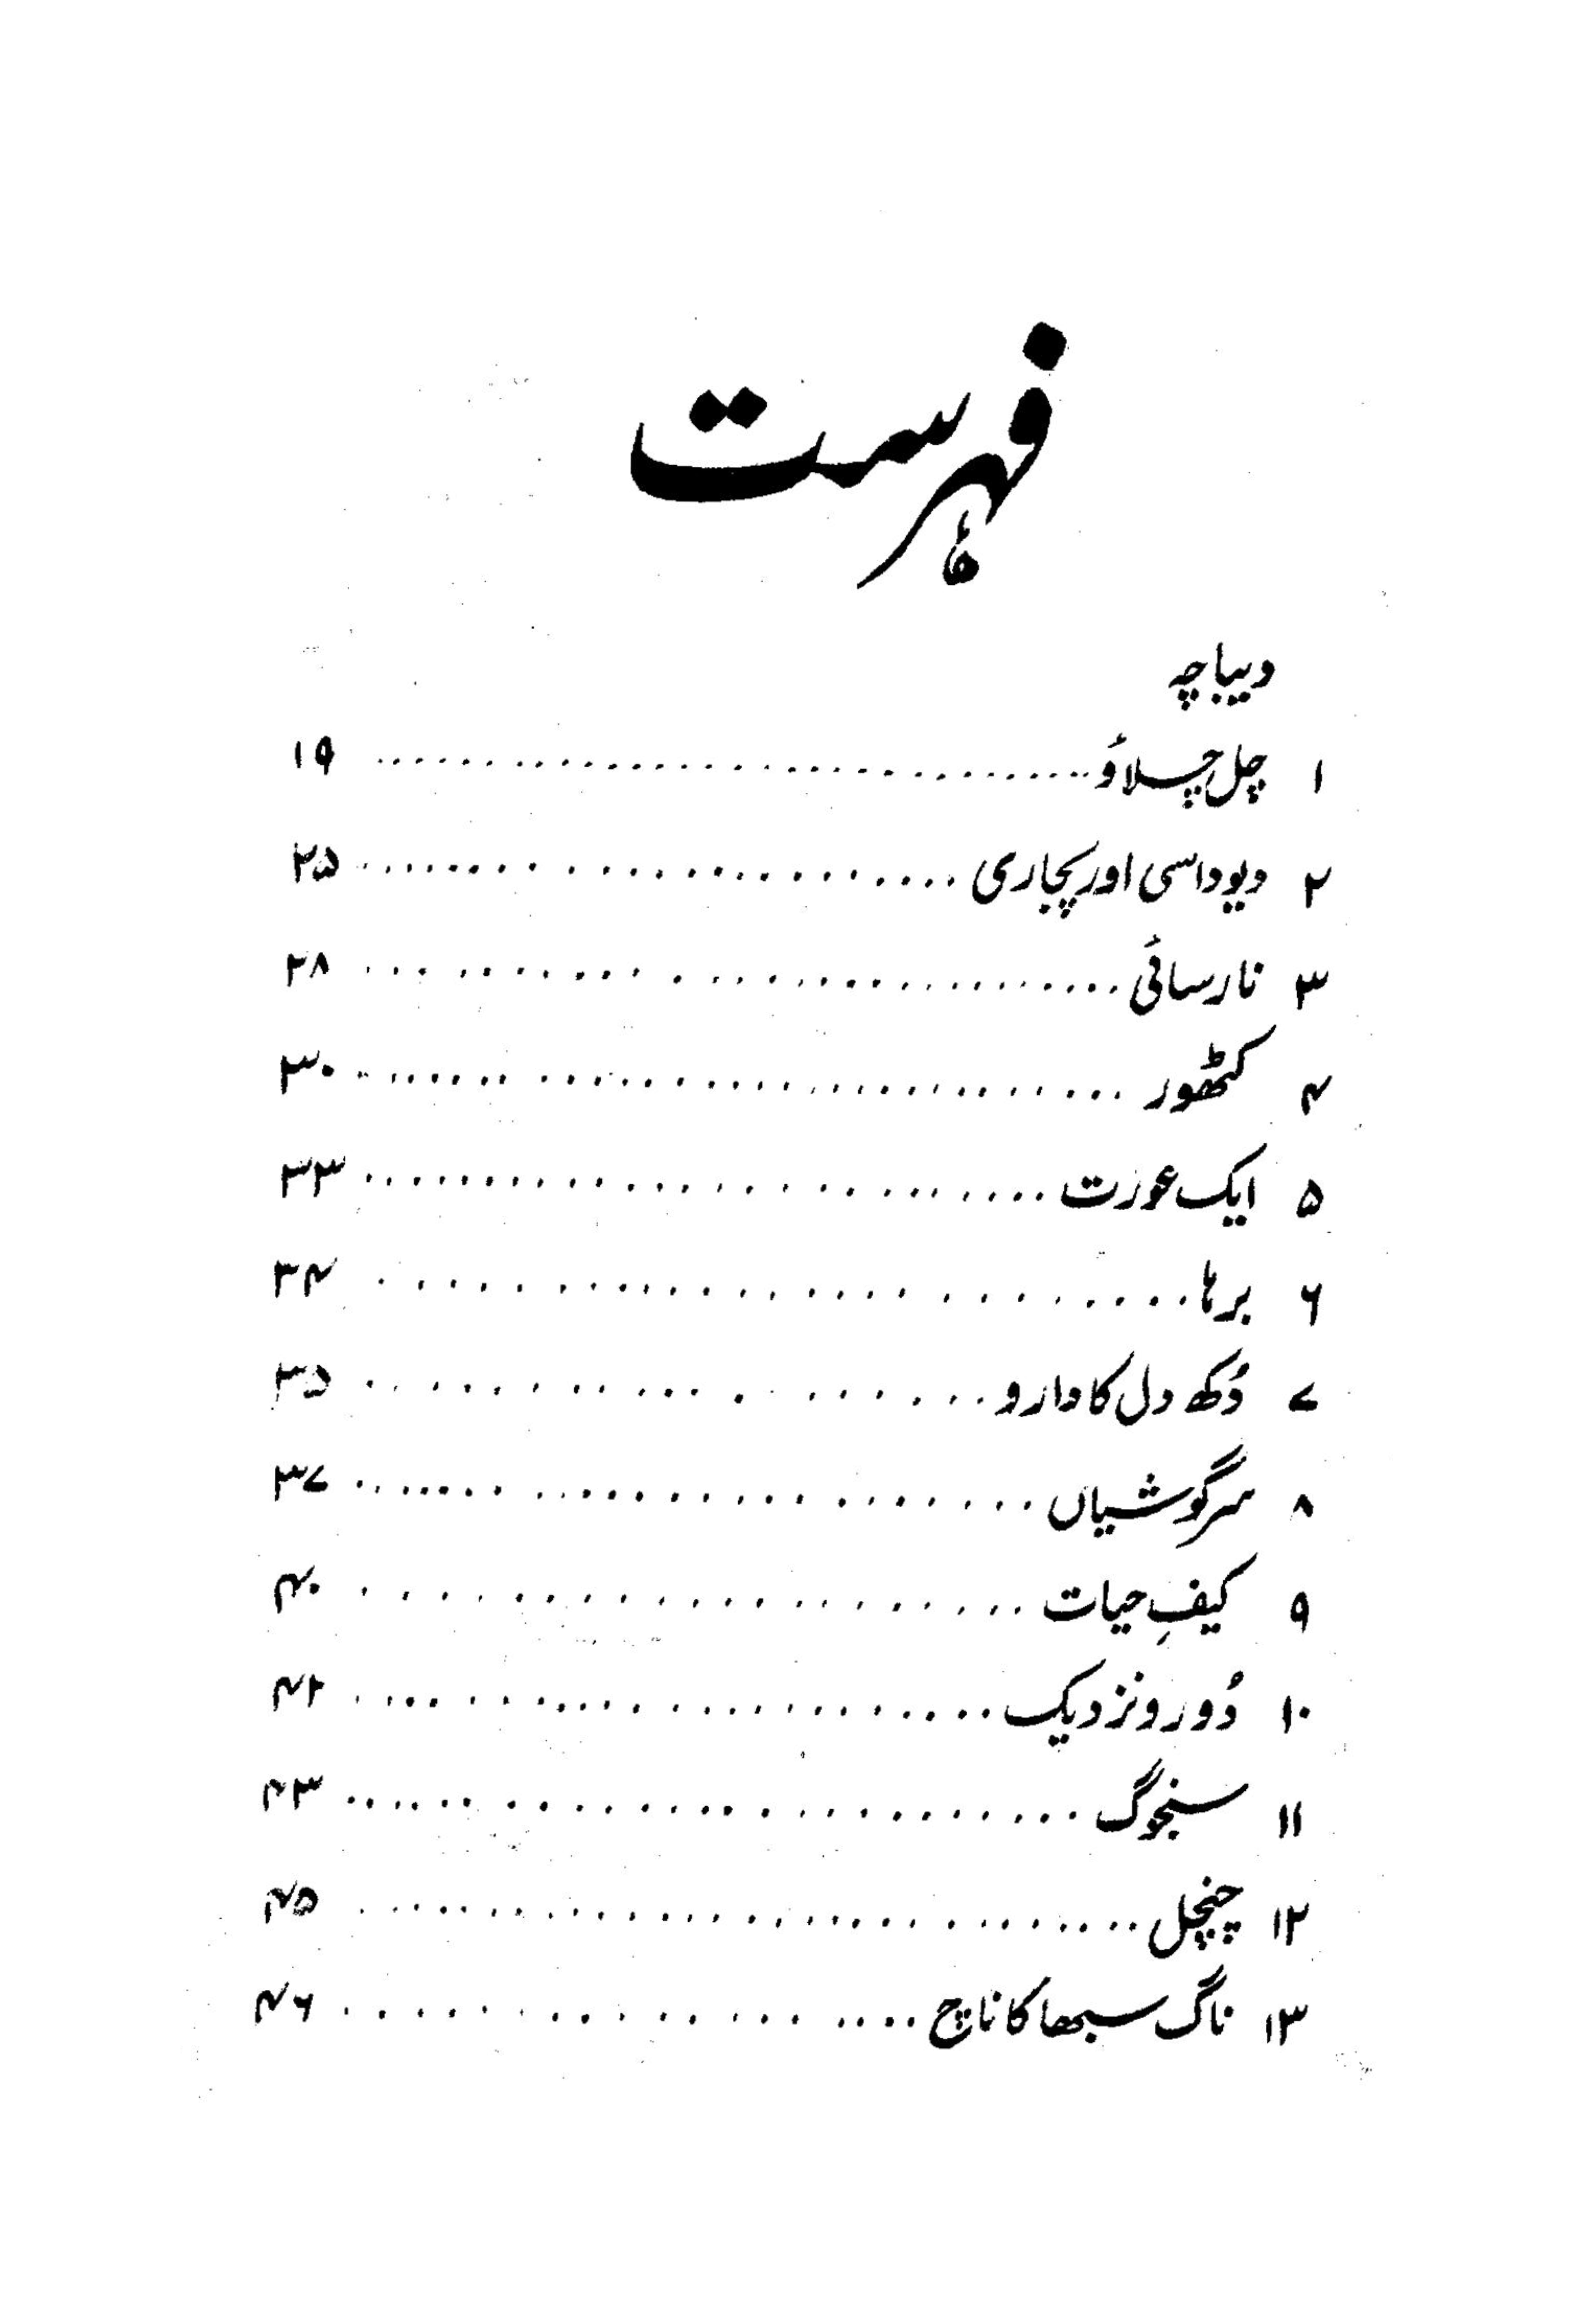 فہرست
دیباچہ
۱ چل چلاؤ ........................ ۱۹
۲ دیوداسی اور پجاری ........................ ۲۵
۳ نارسائی ........................ ۲۸
۴ کٹھور ........................ ۳۰
۵ ایک عورت ........................ ۳۳
۶ برہا ........................ ۳۴
۷ دُکھ دل کا دارو ........................ ۳۵
۸ سرگوشیاں ........................ ۳۷
۹ کیفِ حیات ........................ ۴۰
۱۰ دُور و نزدیک ........................ ۴۲
۱۱ سنجوگ ........................ ۴۳
۱۲ چنچل ........................ ۴۵
۱۳ ناگ سبھا کا ناچ ........................ ۴۶